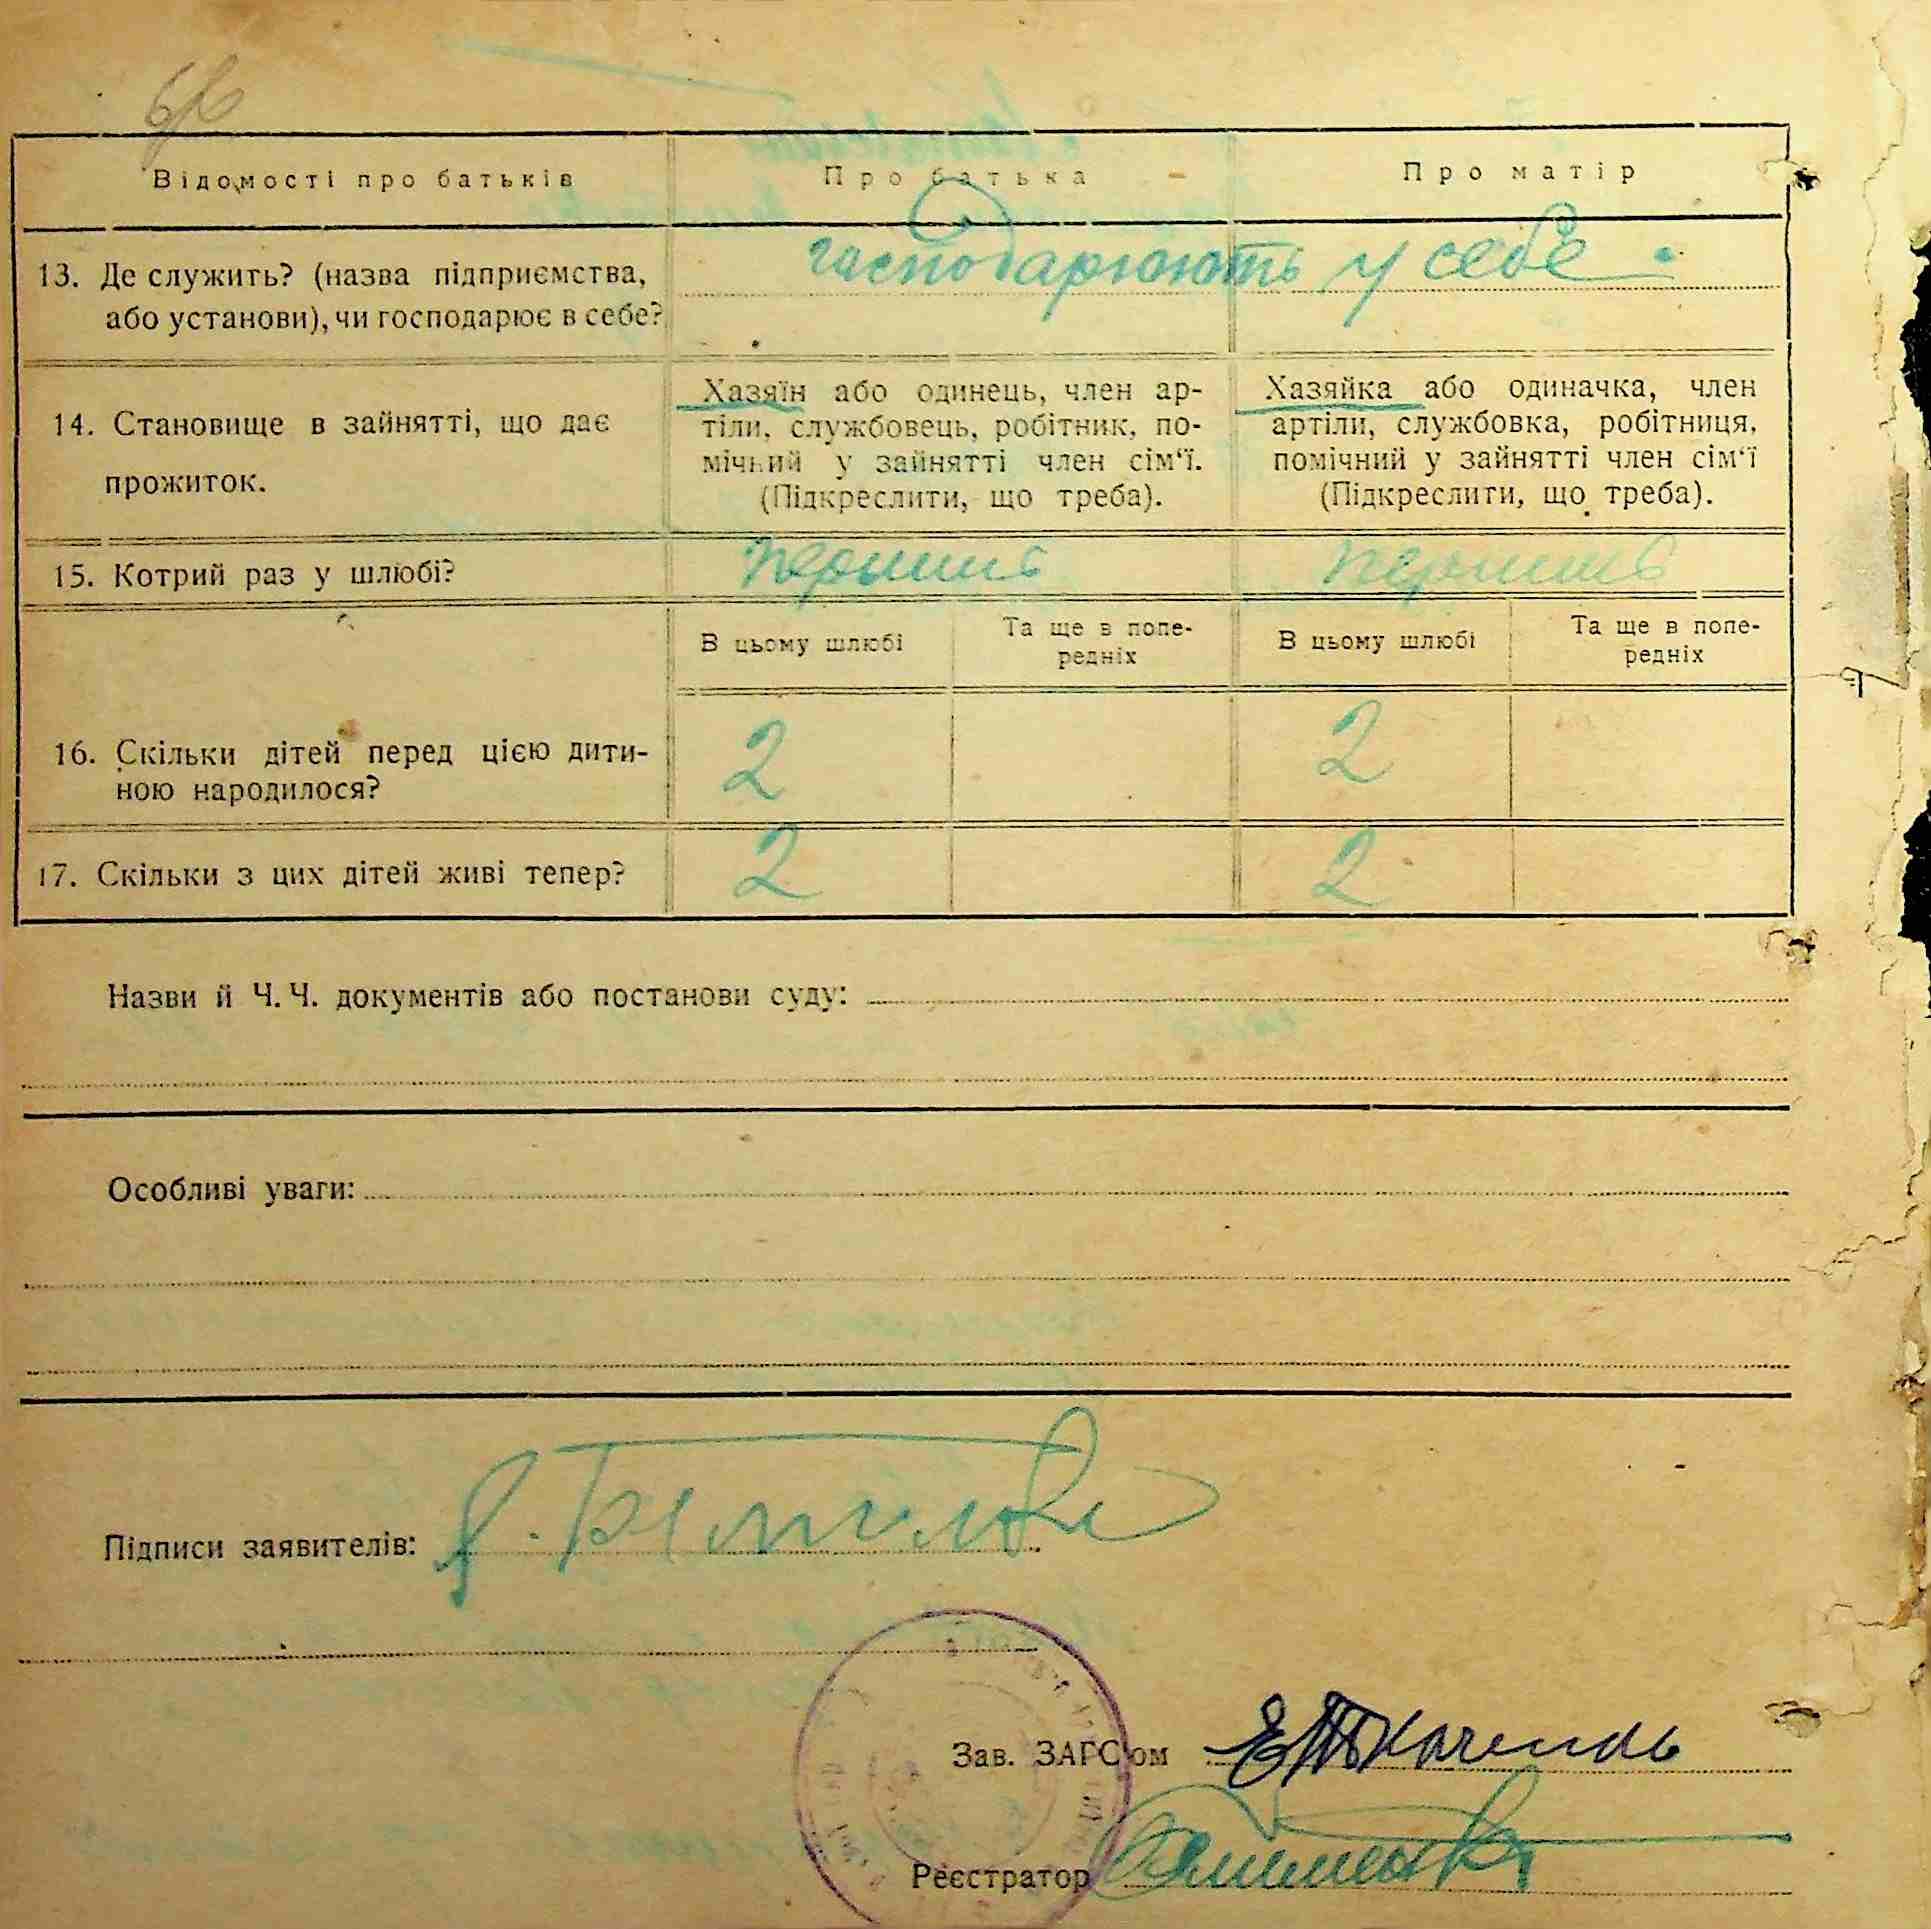 Відомості про батьків
Про батька
Про матір
13. Де служить? (назва підприємства,
або установи), чи господарює в себе?
господарюють у себе.
14. Становище в зайнятті, що дає
прожиток.
Хазяїн або одинець, член ар-
тіли, службовець, робітник, по-
мічний у зайнятті член сім‘ї.
(Підкреслити, що треба).
Хазяйка або одиначка, член
артіли, службовка, робітниця,
помічний у зайнятті член сім‘ї
(Підкреслити, що треба).
15. Котрий раз у шлюбі?
перший
перший
В цьому шлюбі
Та ще в попе-
редніх
В цьому шлюбі
Та ще в попе-
редніх
16. Скільки дітей перед цією дити-
ною народилося?
2
2
17. Скільки з цих дітей живі тепер?
2
2
Назви й Ч. Ч. документів або постанови суду:
Особливі уваги:
Підписи заявителів:
Зав. ЗАГС'ом
Реєстратор